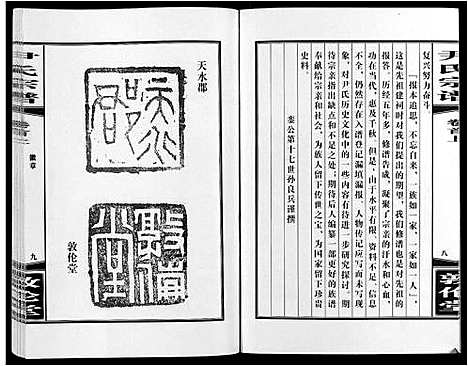 尹氏宗谱
卷首上
八
敦伦堂
复兴努力奋斗
“报本追思，不忘自来，一族如一家，一家如一人”，
这是先祖建祠时对我们提出的期望，我们修谱也是对先祖的
报答。历经五年多，修谱告成，凝聚了宗亲的汗水和心血，
功在当代，惠及千秋。但是，由于水平有限，资料不足，信息
不全，仍然存在入谱登记错填漏报、人物传记应写而未写现
象，对尹氏历史文化中的一些内容有待进一步研究探讨，期
待宗亲指出缺点和不足之处；期待后人编纂一部更好的族谱
奉献给宗亲和社会，为族人留下传世之宝，为国家留下珍贵
史料。
棐公第十七世孙良兵谨撰
尹氏宗谱
卷首上
徽章
九
敦伦堂
天水郡
敦伦堂